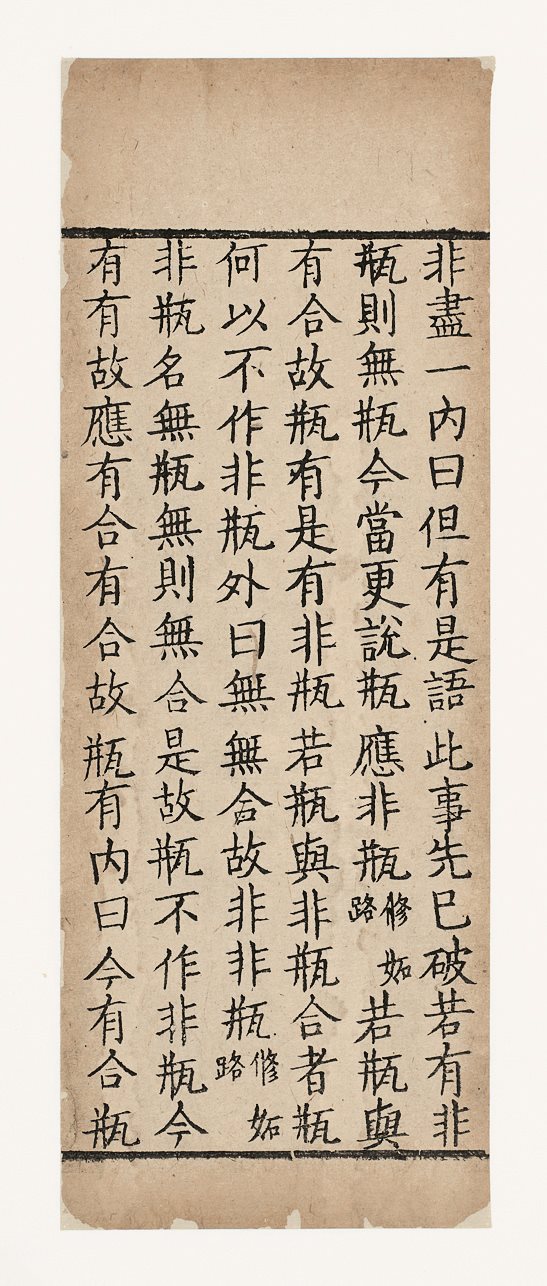 非盡一内曰但有是語此事先已破若有非
瓶則無瓶今當更說瓶應非瓶修妬路若瓶與
有合故瓶有是有非瓶若瓶與非瓶合者瓶
何以不作非瓶外曰無無合故非非瓶修妬路
非瓶名無瓶無則無合是故瓶不作非瓶今
有有故應有合有合故瓶有内曰今有合瓶